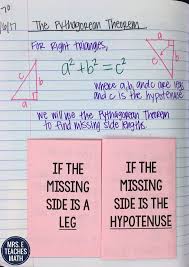 70
The Pythagorean Theorem
/6/17
For Right triangles,
a² + b² = c²
a
c
b
c
a
b
where a, b, and c are legs
and c is the hypotenuse
we will use the Pythagorean Theorem
to find missing side lengths.
IF THE
MISSING
SIDE IS A
LEG
IF THE
MISSING
SIDE IS THE
HYPOTENUSE
MRS. E
TEACHES
MATH